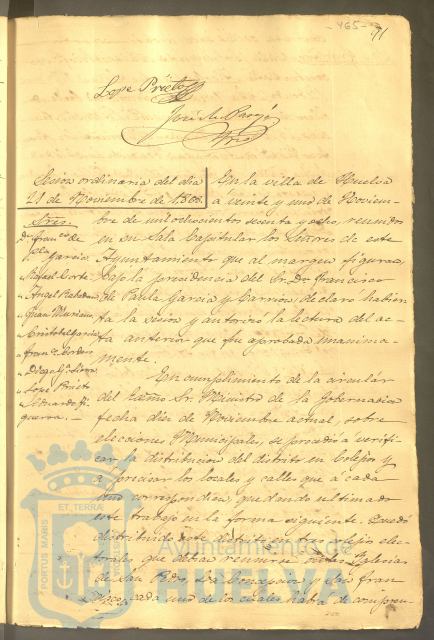 465
71
Lope Prieto
José A. Parejo
Srio
Sesion ordinaria del dia
21 de Noviembre de 1868.
Sres.
D. Franco. de
Paula Garcia
" Rafael Corte
" Angel
" Juan
" Cristobal Garcia
" Franco.
" Diego Ga.
" Lope Prieto
" Eduardo Fi-
guerra.-
En la villa de Huelva
a veinte y uno de Noviem-
bre de mil ochocientos sesenta y ocho, reunidos
en su Sala Capitular los Señores de este
Ayuntamiento que al margen figuran,
bajo la presidencia del Sr. Dn. Francisco
de Paula Garcia y Carrion, declaró habier-
ta la sesion y autorizó la lectura del ac-
ta anterior que fué aprobada unanima-
mente.
En cumplimiento de la circular
del Exmo. Sr. Ministro de la Gobernacion
fecha diez de Noviembre actual, sobre
elecciones Municipales, se procedió a verifi-
car la distribucion del distrito en Colejios y
a precisar los locales y calles que a cada
uno corresponden quedando ultimado
este trabajo en la forma siguiente. Quedó
distribuido este distrito en tres colejios elec-
torales que debian reunirse Iglesias
de San Pedro, la Concepcion y San Fran-
cisco, cada uno de los cuales habrá de compren-
PORTUS MARIS
ET TERRAE
Ayuntamiento de
HUELVA